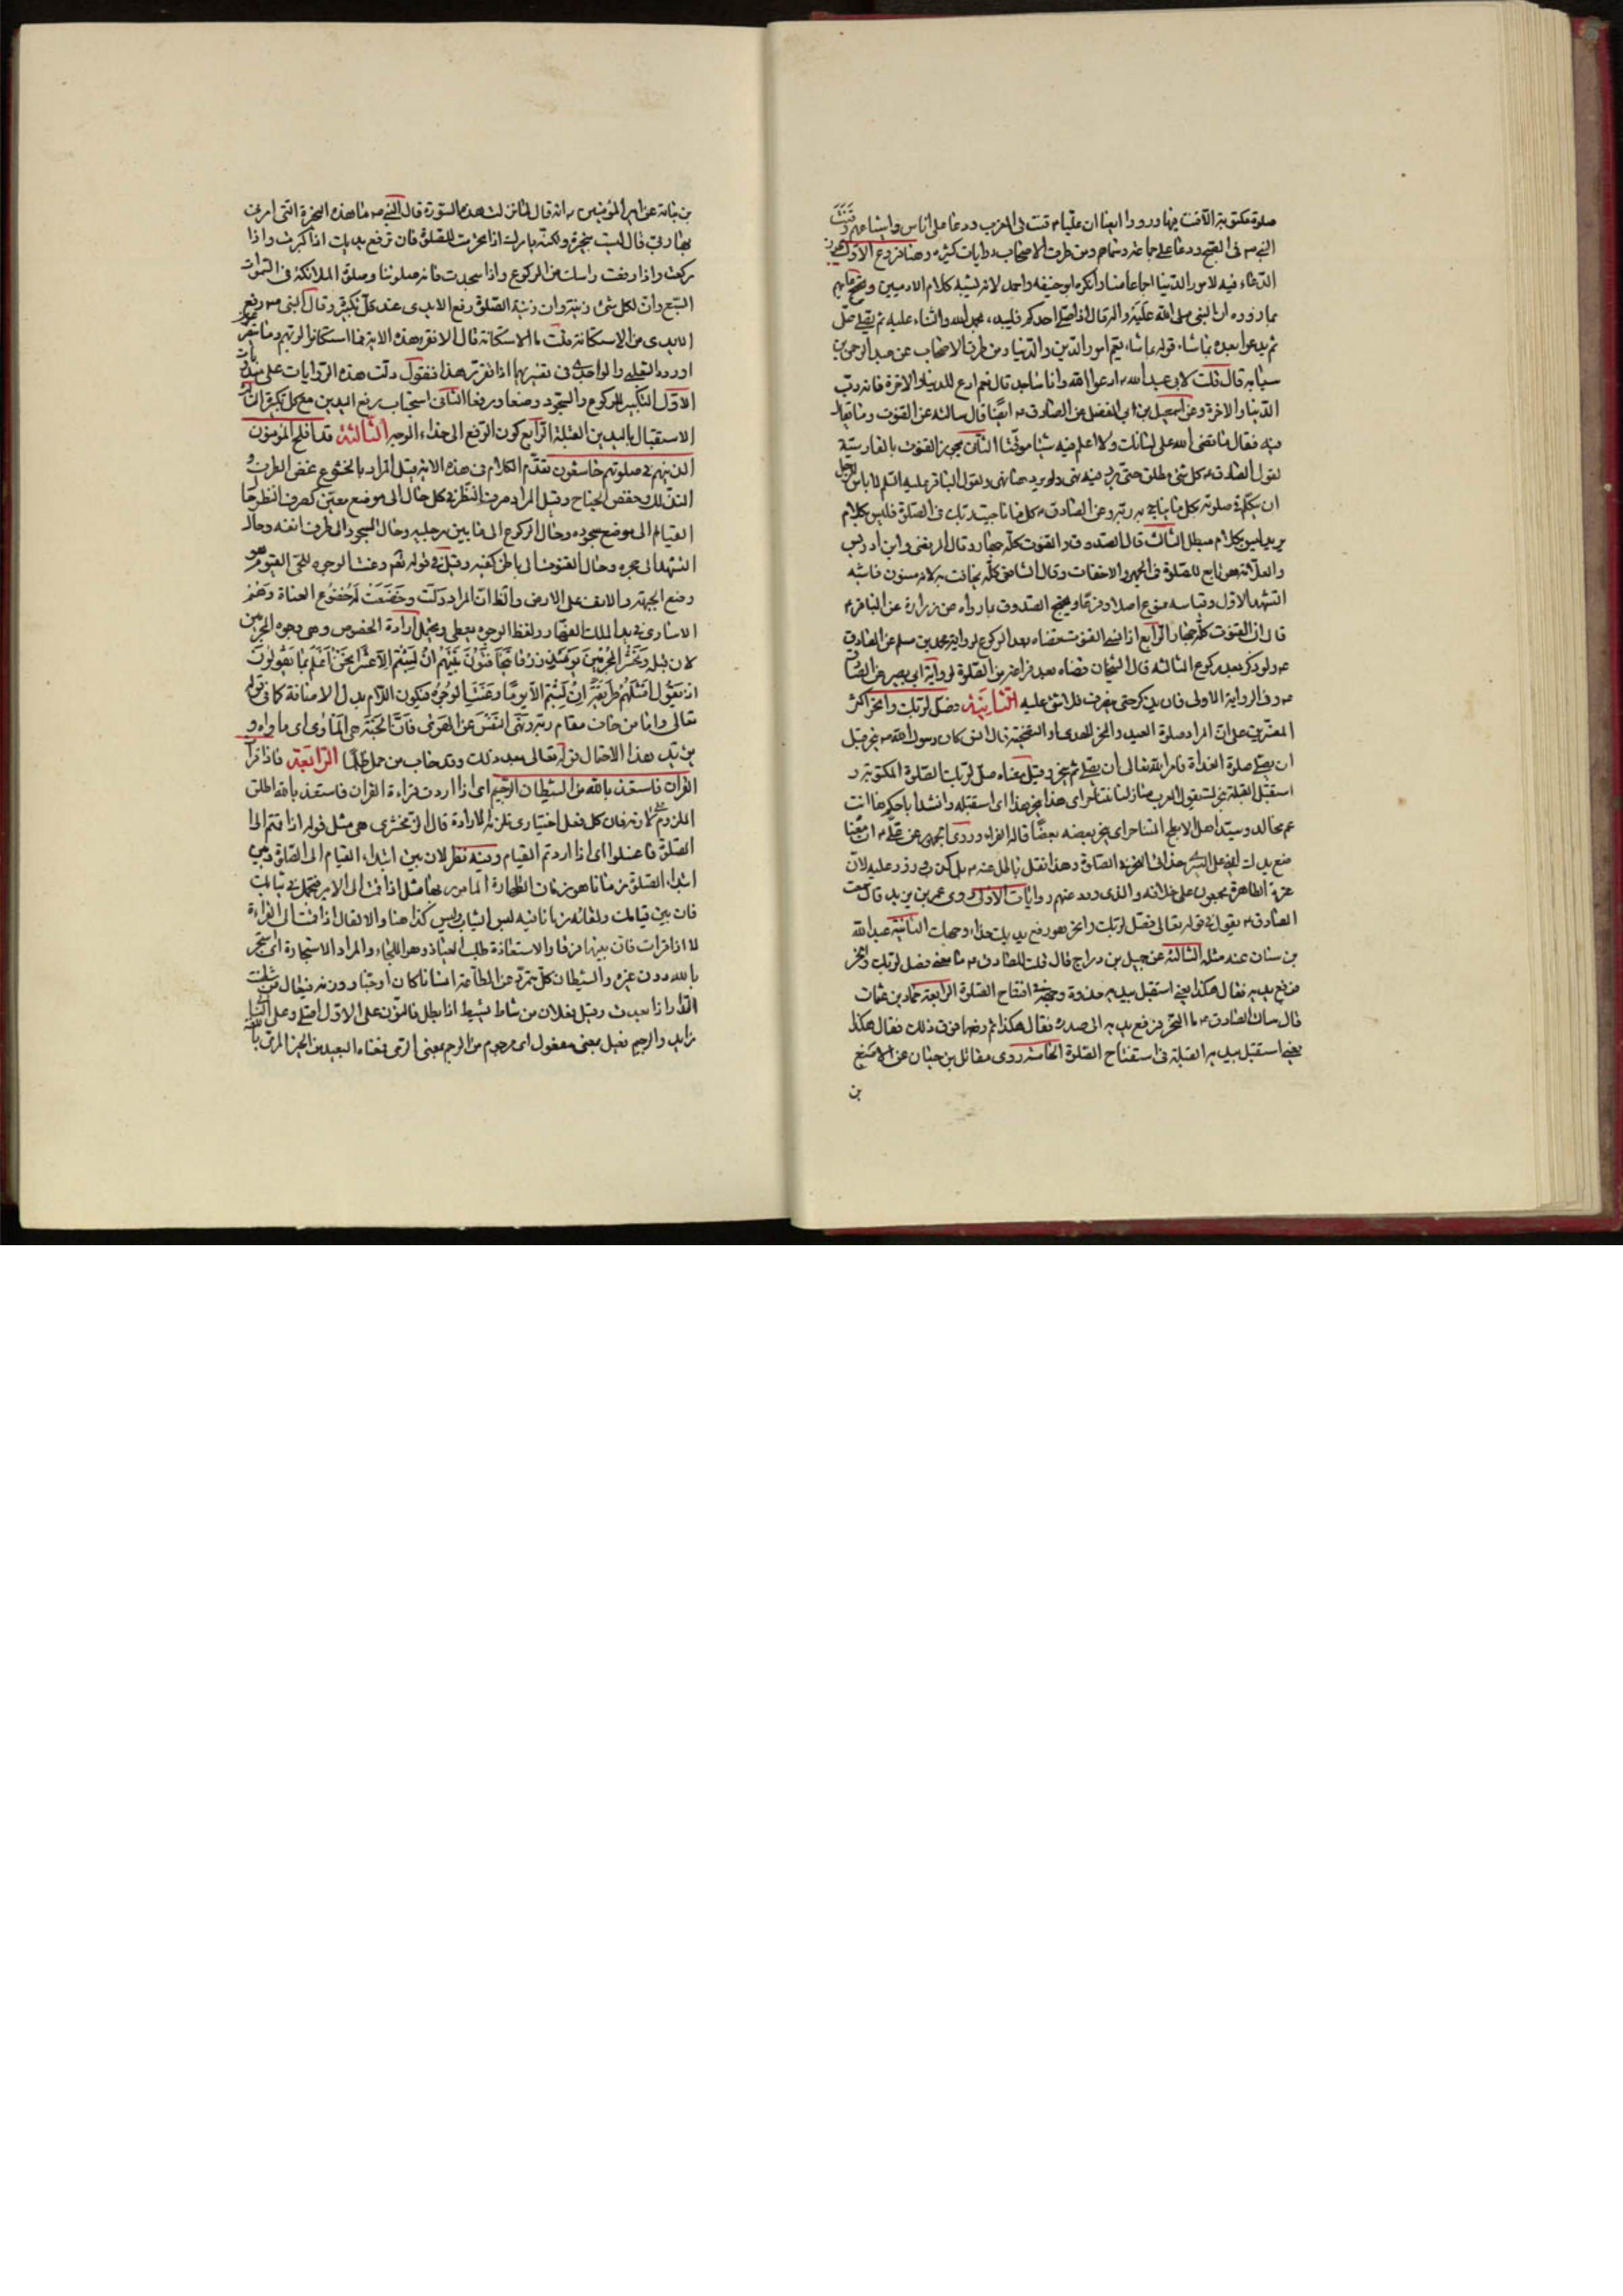 صلوة مكتوبة الا قنت فيها ورووا ايضا ان عليا م قنت فى المغرب ودعا على اناس واشياعهم وقنت
النبي ص فى الصبح ودعا على جماعة وسماهم ومن طرق الاصحاب روايات كثيره وهنا فروع الاول يجوز
الدعاء فيه لامور الدنيا اجماعا منا وانكره ابو حنيفه واحمد لانه يشبه كلام الادميين ويحج عليهم
بما رووه ان النبى صلى الله عليه واله قال اذا صلى احدكم فليبدء بحمد الله والثناء عليه ثم يصلى على
ثم يدعوا بعده بما شاء قوله بما شاء يعم امور الدين والدنيا ومن طرق الاصحاب عن عبد الرحمن بن
سيابه قال قلت لابى عبد الله م ادعوا الله وانا ساجد قال نعم ادع للدنيا والاخرة فانه رب
الدنيا والاخرة وعن اسمعيل بن الفضل عن الصادق م ايضا قال سالته عن القنوت وما يقال
فيه فقال ما قضى الله على لسانك ولا اعلم فيه شيئا موقتا الثانى يجوز القنوت بالفارسية
لقول الصادق م كل شئ مطلق حتى يرد فيه نهى ولم يرد هنا نهى ولقول الباقر عليه السلم لا باس للرجل
ان يتكلم فى صلوته بكل ما يناجى به ربه وعن الصادق م كلما ناجيت به ربك فى الصلوة فليس بكلام
يريد ليس بكلام مبطل الثالث قال الصدوق والقنوت كله جهار وقال المرتضى وابن ادريس
والعلامة هو تابع للصلوة فى الجهر والاخفات وقال الشافعى كله يخافت به لانه مسنون فاشبه
التشهد الاول وقياسه ممنوع اصلا وفرعا ويحتج الصدوق بما رواه عن زرارة عن الباقر م
قال ان القنوت كله جهار الرابع اذا نسى القنوت قضاه بعد الركوع لرواية محمد بن مسلم عن الصادق
م ولو ذكر بعد ركوع الثالثه قال الشيخان قضاه بعد فراغه من الصلوة لرواية ابى بصير عن الصادق
م وفى الرواية الاولى فان لم يذكر حتى ينصرف فلا شئ عليه الثانية فصل لربك وانحر اكثر
المفسرين على ان المراد صلوة العيد والنحر للهدى او الاضحية قال انس كان رسول الله ص ينحر قبل
ان يصلى صلوة الغداة فامر الله تعالى ان يصلى ثم ينحر وقيل معناه صل لربك الصلوة المكتوبة و
استقبل القبلة بنحرك تقول العرب منازلنا تتناحر اى هذا ينحر هذا اى استقبله وانشد ابا حكم ها انت
عم مجالد وسيد اهل الابطح المتناحر اى ينحر بعضه بعضا قاله الفراء وروى الجمهور عن على م ان معناه
ضع يدك اليمنى على اليسرى حذاء النحر فى الصلوة وهذا نقل باطل عنه م بل كذب وزور عليه لان
عترة الطاهرة مجمعون على خلافه والذى ورد عنهم روايات الاول روى عمر بن يزيد قال سمعت
الصادق م يقول فى قوله تعالى فصل لربك وانحر هو رفع يديك حذاء وجهك الثانية عبد الله
بن سنان عنه مثله الثالثة عن جميل بن دراج قال قلت للصادق م ما معنى فصل لربك وانحر
فرفع يديه فقال هكذا يعنى استقبل بيديه حذوة وجهه فى افتتاح الصلوة الرابعة حماد بن عثمان
قال سالت الصادق م ما النحر فرفع يديه الى صدره فقال هكذا ثم رفعها فوق ذلك فقال هكذا
يعنى استقبل بيديه القبلة فى استفتاح الصلوة الخامسة روى مقاتل بن حيان عن الاصبغ
بن
بن نباته عن امير المؤمنين م انه قال لما نزلت هذه السورة قال النبى ص ما هذه النحرة التى امرنى
بها ربى قال ليست بنحرة ولكنه يامرك اذا تحرمت للصلوة فان ترفع يديك اذا كبرت واذا
ركعت واذا رفعت راسك من الركوع واذا سجدت فانه صلوتنا وصلوة الملائكة فى السموات
السبع وان لكل شئ زينة وان زينة الصلوة رفع الايدى عند كل تكبيرة وقال النبى ص رفع
الايدى من الاستكانة قلت ما الاستكانة قال الا تقرء هذه الاية فما استكانوا لربهم وما يتضرعون
اورده الثعلبى والواحدى فى تفسيريهما اذا تقرر هذا فنقول دلت هذه الروايات على
الاول التكبير للركوع والسجود وضعا ورفعا الثانى استحباب رفع اليدين مع كل تكبيرة الثالث
الاستقبال باليدين القبلة الرابع كون الرفع الى حذاء الوجه الثالثة قد افلح المؤمنون
الذين هم فى صلوتهم خاشعون تقدم الكلام فى هذه الاية وقيل المراد بالخشوع غض الطرف و
التذلل وخفض الجناح وقيل المراد صرف النظر فى كل حال الى موضع معين كصرف النظر حال
القيام الى موضع سجوده وحال الركوع الى ما بين رجليه وحال السجود الى طرف انفه وحال
التشهد الى حجره وحال القنوت الى باطن كفيه وقيل فى قوله تعم وعنت الوجوه للحى القيوم هو
وضع الجبهة والانف على الارض والظاهر ان المراد ذلت وخضعت له خضوع العناة وهم
الاسارى فى يد الملك القهار ولفظ الوجوه يعطى ويحتمل ارادة الخصوص وهى وجوه المجرمين
لان قبله ونحشر المجرمين يومئذ زرقا يتخافتون بينهم ان لبثتم الا عشرا نحن اعلم بما يقولون
اذ يقول امثلهم طريقة ان لبثتم الا يوما وعنت الوجوه فيكون اللام بدل الاضافة كما فى قوله
تعالى واما من خاف مقام ربه ونهى النفس عن الهوى فان الجنة هى الماوى اى ماواه و
يؤيد هذا الاحتمال قوله تعالى بعد ذلك وقد خاب من حمل ظلما الرابعة فاذا قرات
القران فاستعذ بالله من الشيطان الرجيم اى اذا اردت قراءة القران فاستعذ بالله اطلق
الملزوم على لازمه فان كل فعل اختيارى تلزمه الارادة قال الزمخشرى هى مثل قوله اذا قمتم الى
الصلوة فاغسلوا اى اذا اردتم القيام وفيه نظر لان بين ابتداء القيام الى الصلوة وبين
ابتداء الصلوة زمانا هو زمان الطهارة المامور بها مثل اذا قمت الى الامير فتجمل فى ثيابك
فان بين قيامك ولقائه زمانا فيه لبس الثياب وليس كذا هنا والا لقال اذا قمت الى القراءة
لا اذا قرات فان بينهما فرقا والاستعاذة طلب العياذ وهو اللجاء والمراد الاستجارة اى استجر
بالله دون غيره والشيطان كل متمرد عن الطاعة انسانا كان او جنيا ووزنه فيعال من شطنت
الدار اذا بعدت وقيل فعلان من شاط يشيط اذا بطل فالنون على الاول اصلى وعلى الثانى
زايد والرجيم فعيل بمعنى مفعول اى مرجوم من الرجم بمعنى الرمى فمعناه البعيد من الخير المرمى باللعنة